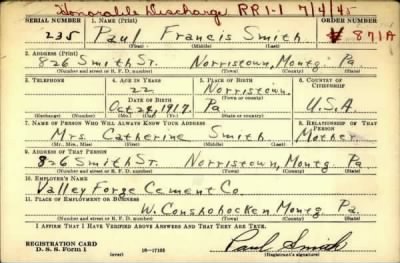 Honorable Discharge RR1-1 7/4/45
SERIAL NUMBER 1. NAME (Print) ORDER NUMBER
235 Paul Francis Smith V 871A
(First) (Middle) (Last)
2. ADDRESS (Print)
826 Smith St. Norristown, Montg. Pa
(Number and street or R. F. D. number) (Town) (County) (State)
3. TELEPHONE 4. AGE IN YEARS 5. PLACE OF BIRTH 6. COUNTRY OF CITIZENSHIP
22 Norristown.
DATE OF BIRTH (Town or county)
Oct 28, 1917. Pa U.S.A
(Exchange) (Number) (Mo.) (Day) (Yr.) (State or country)
7. NAME OF PERSON WHO WILL ALWAYS KNOW YOUR ADDRESS 8. RELATIONSHIP OF THAT PERSON
Mrs. Catherine Smith Mother
(Mr., Mrs., Miss) (First) (Middle) (Last)
9. ADDRESS OF THAT PERSON
826 Smith St. Norristown, Montg. Pa
(Number and street or R. F. D. number) (Town) (County) (State)
10. EMPLOYER'S NAME
Valley Forge Cement Co.
11. PLACE OF EMPLOYMENT OR BUSINESS
W. Conshohocken Montg Pa.
(Number and street or R. F. D. number) (Town) (County) (State)
I AFFIRM THAT I HAVE VERIFIED ABOVE ANSWERS AND THAT THEY ARE TRUE.
REGISTRATION CARD
D. S. S. Form 1 16-17105 Paul Smith
(over) (Registrant's signature)